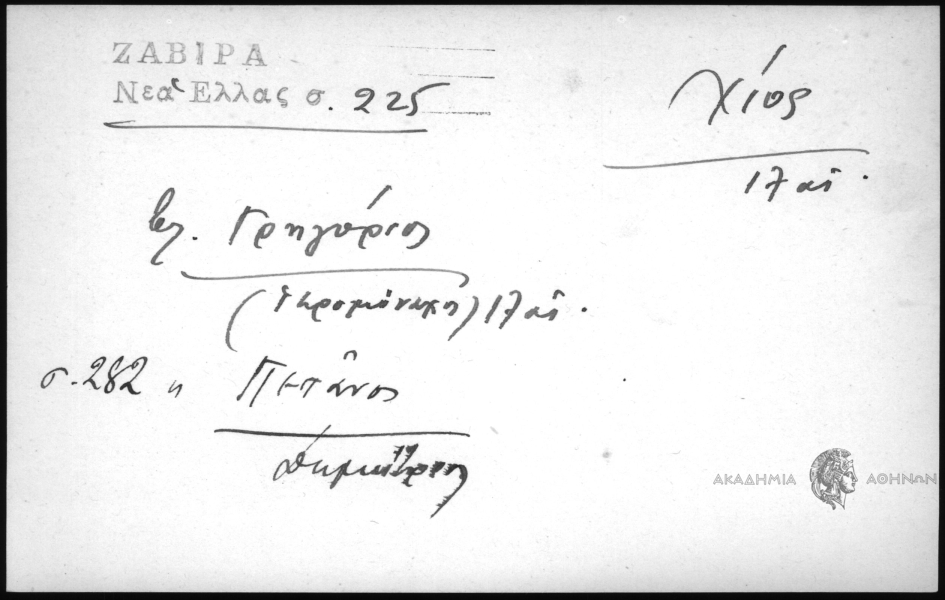 ΖΑΒΙΡΑ
Νεα Ελλας σ. 225
Χίος
17 αι.
Βλ. Γρηγόριος
(Ιερομόναχος) 17 αι.
σ. 282 " Πετάνος
Δημήτριος
ΑΚΑΔΗΜΙΑ ΑΘΗΝΩΝ